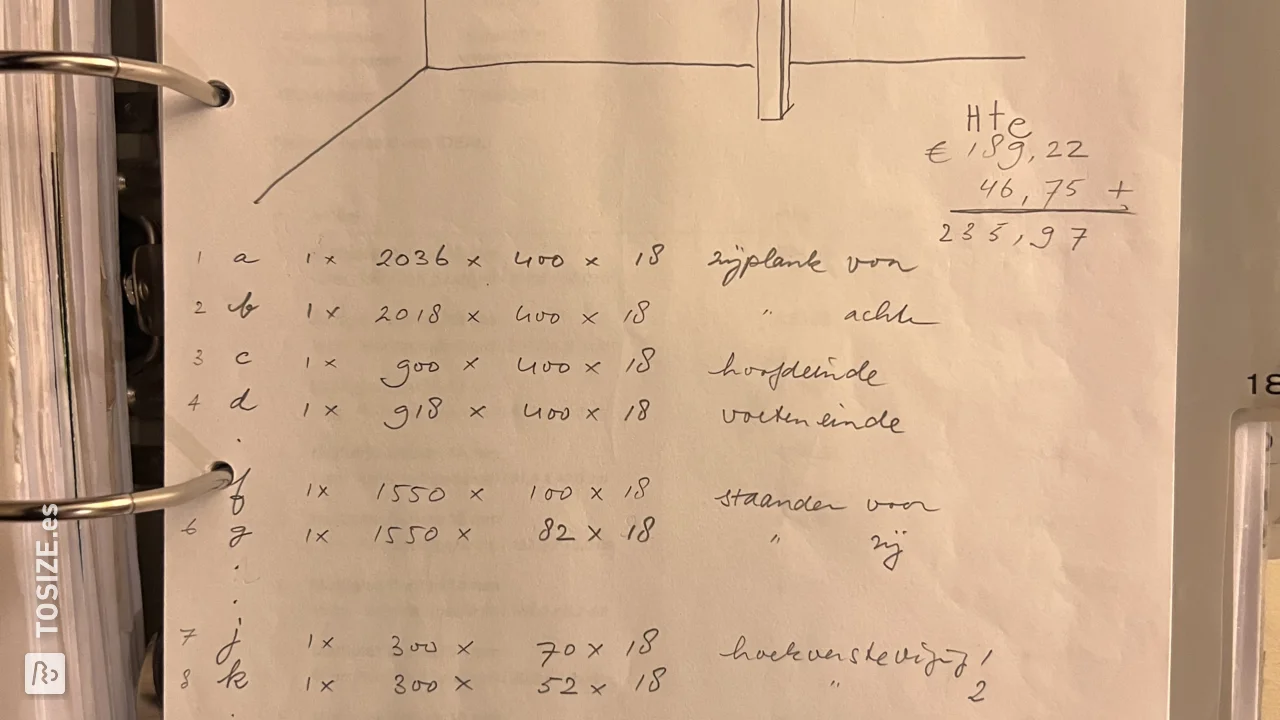 Hte
€ 189,22
46,75 +
235,97
1 a 1x 2036 x 400 x 18 zijplank voor
2 b 1x 2018 x 400 x 18 " achter
3 c 1x 900 x 400 x 18 hoofdeinde
4 d 1x 918 x 400 x 18 voeteneinde
f 1x 1550 x 100 x 18 staander voor
6 g 1x 1550 x 82 x 18 " zij
7 j 1x 300 x 70 x 18 hoekversteviging 1
8 k 1x 300 x 52 x 18 " 2
18
TOSIZE.es